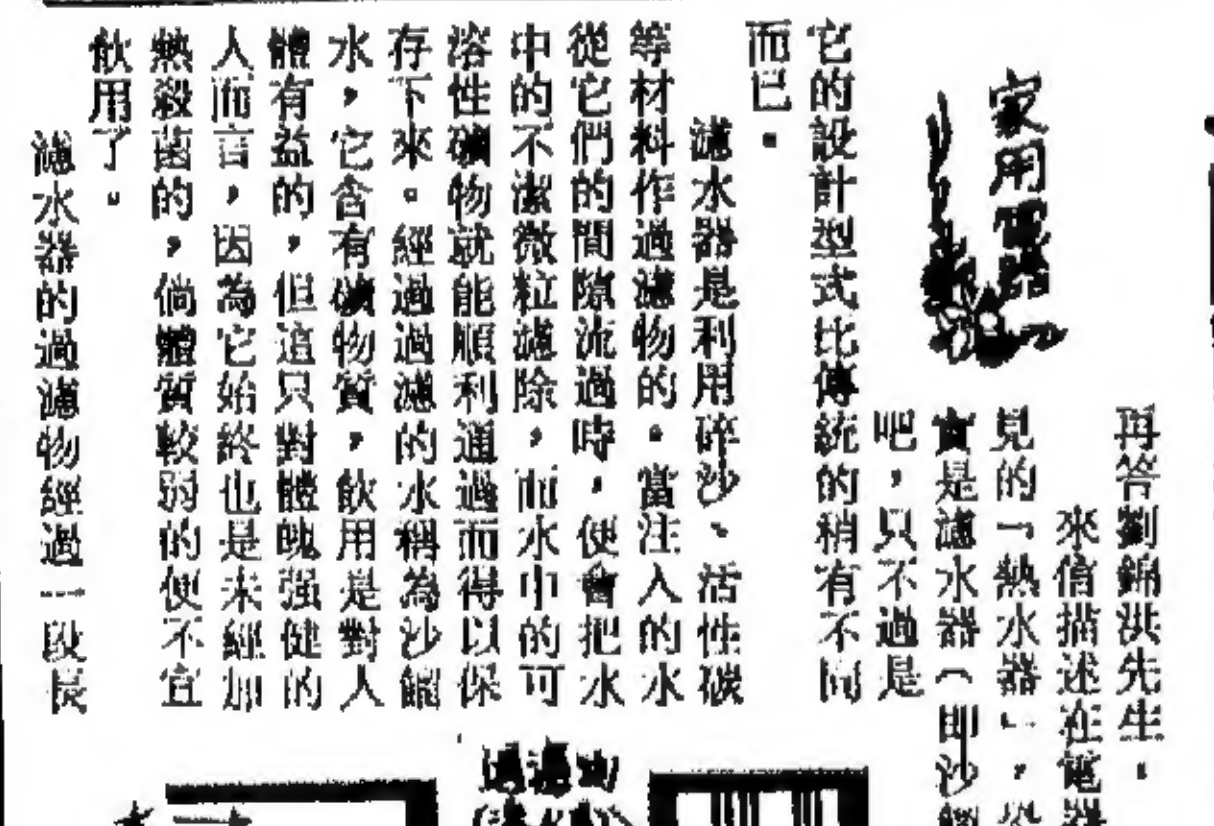 家用電器
再答劉錦洪先生．
來信描述在電器
見的「熱水器」，恐
實是濾水器（即沙
吧，只不過是
它的設計型式比傳統的稍有不同
而已．
濾水器是利用碎沙、活性碳
等材料作過濾物的．當注入的水
從它們的間隙流過時，便會把水
中的不潔微粒濾除，而水中的可
溶性礦物就能順利通過而得以保
存下來。經過過濾的水稱為沙餾
水，它含有礦物質，飲用是對人
體有益的，但這只對體魄强健的
人而言，因為它始終也是未經加
熱殺菌的，倘體質較弱的便不宜
飲用了。
濾水器的過濾物經過一段長